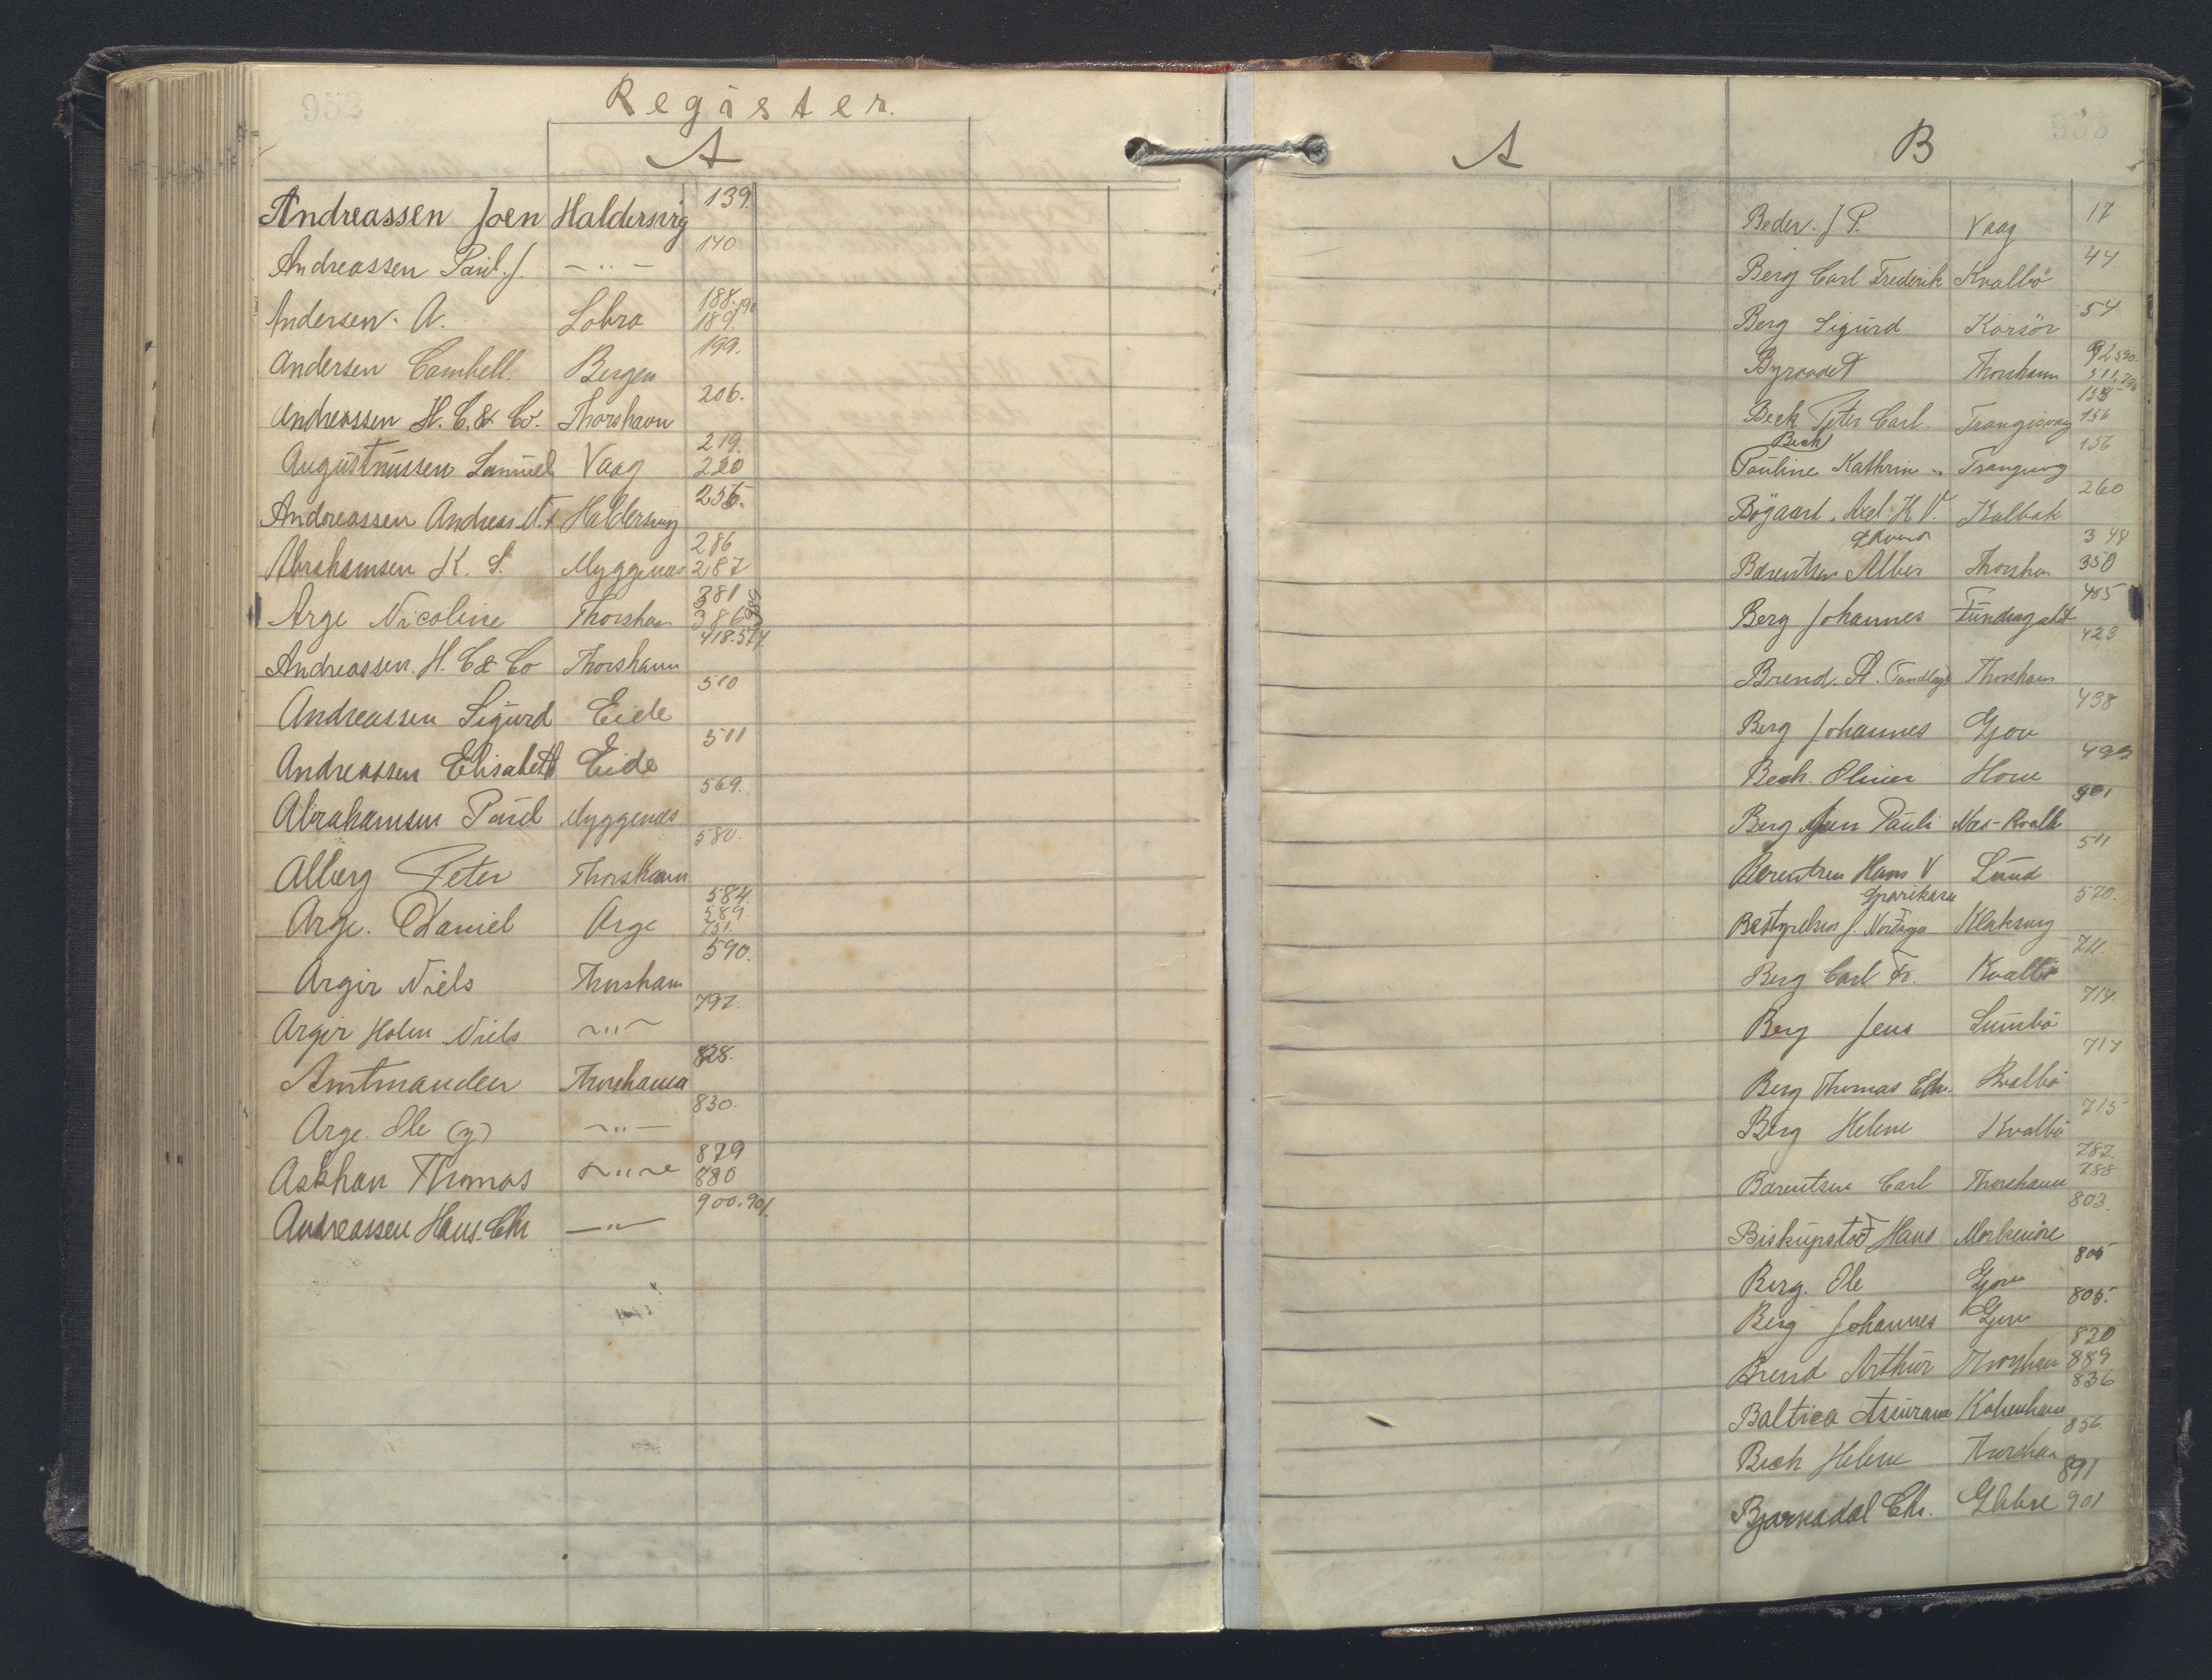 952
Register.
A
Andreassen Joen Haldersvig 139.
Andreassen Paul. J. — " — 140
Andersen. A. Lobra 188. 190 189.
Andersen Camhell. Bergen 199.
Andreassen H. C. & Co. Thorshavn 206.
Augustinussen Samuel Vaag 219. 220
Andreassen Andreas Haldersvig 256.
Abrahamsen K. S. Myggenæs 286 287
Arge Nicoline Thorshavn 381 386
Andreassen. H. C & Co Thorshavn 418. 574
Andreassen Sigurd Eide 510
Andreassen Elisabeth Eide 511
Abrahamsen Paul Myggenæs 569.
Alberg Peter Thorshavn 580.
Arge. Daniel Arge 584. 589. 751.
Argir Niels Thorshavn 590.
Argir Holm Niels ~ " ~ 797.
Amtmanden Thorshavn 828.
Arge. Ole (g) ~ " — 830.
Askhan Thomas ~ " ~ 879 880
Andreassen Hans. Chr — " — 900. 901.
A
B
953
Beder. J P. Vaag 17
Berg Carl Frederik Kvalbö 44
Berg Sigurd Korsör 54
Byraadet Thorshavn 92 590. 511
Beck Peter Carl. Trangisvaag 155 156
Beck
Pauline Kathrine Trangisvaag 156
Bögaard. Axel. H V. Kalbak 260
Edvard
Bærentsen Alber Thorshavn 348 350
Berg Johannes Funding 405
Brend. A. (Tandlæge) Thorshavn 423
Berg Johannes Gjov 438
Bech. Oliver Hove 499
Berg Joen Pauli Næs-Kvalb 501
Berentsen Hans V Sund 511
Sparikassa
Bestyrelsen f. Norderøja Klaksvig 570.
Berg Carl Fr. Kvalbö 711.
Berg Jens Sumbö 714.
Berg Thomas Edv. Kvalbö 717
Berg Helene Kvalbö 715
Bærentsen Carl Thorshavn 787. 788
Biskupstød Hans Morkenöre 803.
Berg. Ole Gjov 805
Berg Johannes Gjov 805.
Brend Arthur Thorshavn 820 889
Baltica Assurance Kobenhavn 836
Bech Helene Thorshavn 856.
Bjarnadal Chr. Glibre 891 901